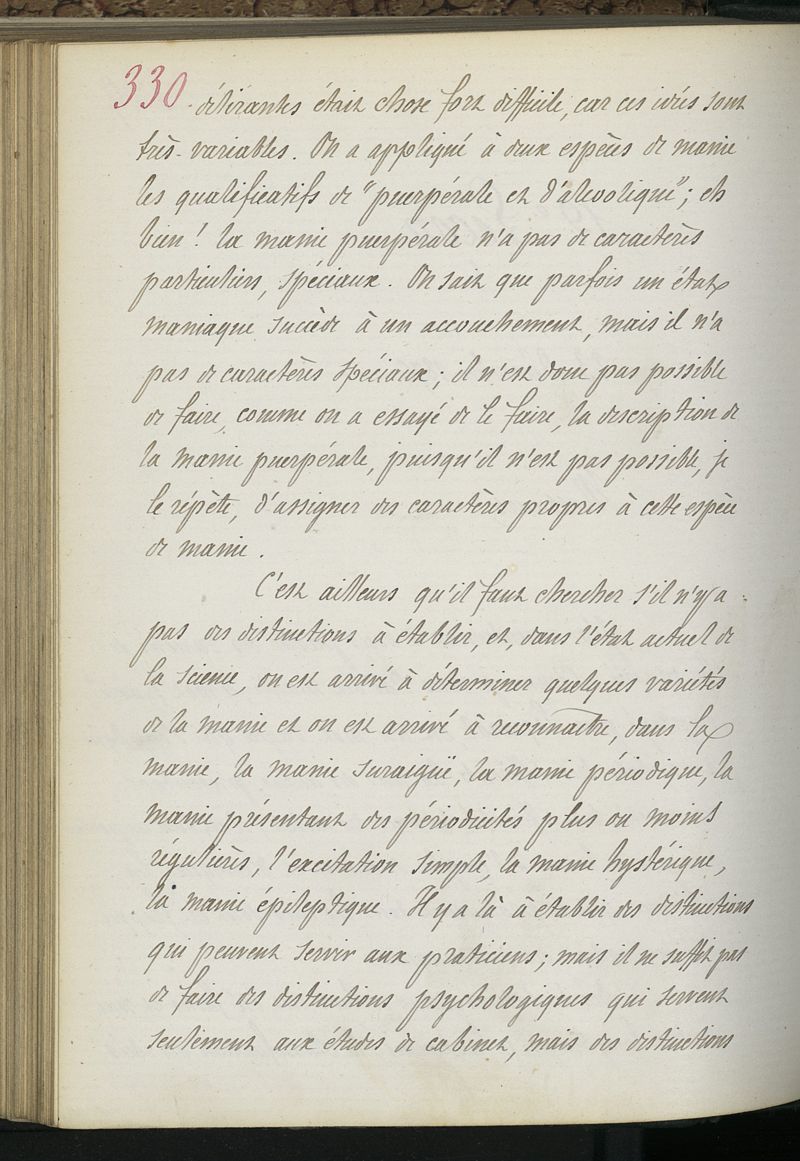 330.
délirantes était chose fort difficile, car ces idées sont
très-variables. On a appliqué à deux espèces de manie
les qualificatifs de "puerpérale et d'alcoolique"; eh
bien! la manie puerpérale n'a pas de caractères
particuliers, spéciaux. On sait que parfois un état
maniaque succède à un accouchement, mais il n'a
pas de caractères spéciaux; il n'est donc pas possible
de faire, comme on a essayé de le faire, la description de
la manie puerpérale, puisqu'il n'est pas possible, je
le répète, d'assigner des caractères propres à cette espèce
de manie.
C'est ailleurs qu'il faut chercher s'il n'y a
pas des distinctions à établir, et, dans l'état actuel de
la science, on est arrivé à déterminer quelques variétés
de la manie et on est arrivé à reconnaître, dans la
manie, la manie suraigüe, la manie périodique, la
manie présentant des périodicités plus ou moins
régulières, l'excitation simple, la manie hystérique,
la manie épileptique. Il y a là à établir des distinctions
qui peuvent servir aux praticiens; mais il ne suffit pas
de faire des distinctions psychologiques qui servent
seulement aux études de cabinet, mais des distinctions